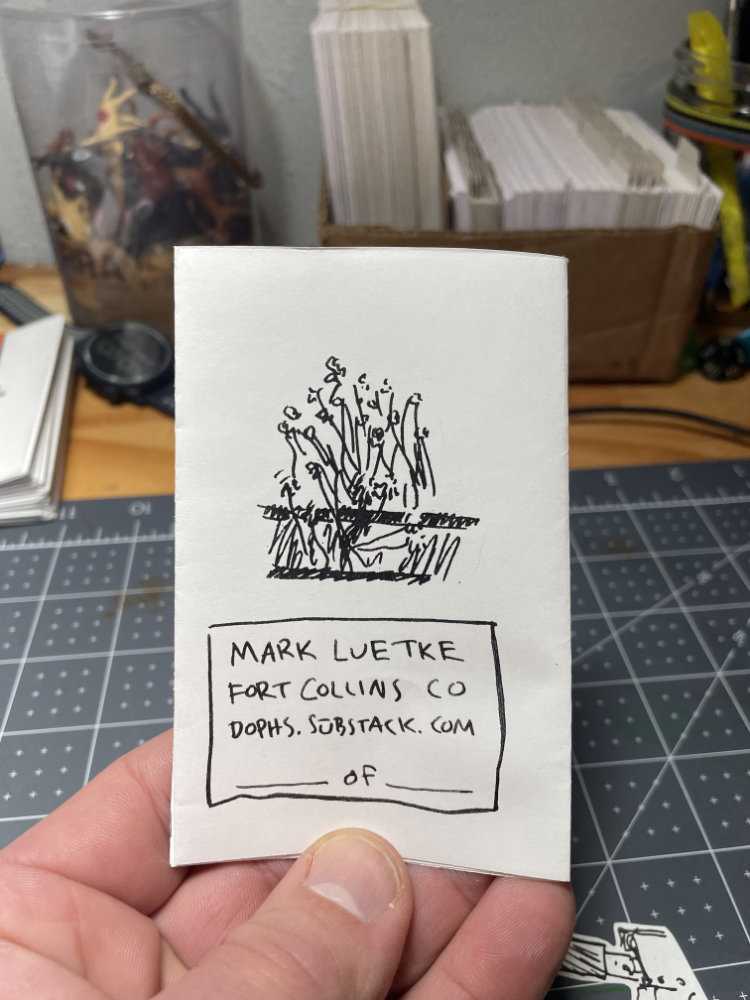 MARK LUETKE
FORT COLLINS CO
DOPHS.SUBSTACK.COM
______ OF ______